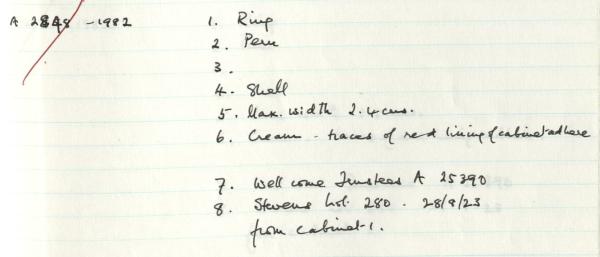 A 2848 - 1982
1. Ring
2. Peru
3.
4. Shell
5. Max. width 2.4 cms.
6. Cream - traces of red lining of cabinet adhere
7. Wellcome Trustees A 25390
8. Stevens Lot. 280 . 28/8/23
from cabinet 1.